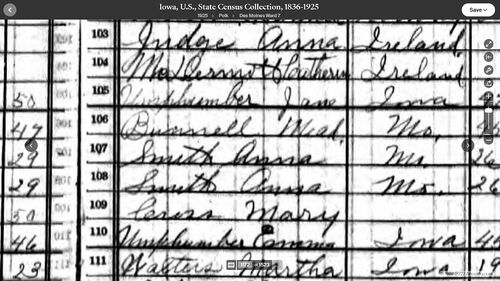 Iowa, U.S., State Census Collection, 1836-1925
1925 > Polk > Des Moines Ward 7
Save
103 Judge Anna Ireland
104 McDermott Catherine Ireland
50 105 Umphumber Jane Iowa
47 106 Bunnell Mead Mo.
29 107 Smith Anna Mo. 26
29 108 Smith Anna Mo. 26
50 109 Mary
46 110 Umphumber Emma Iowa
23 111 Walters Martha Iowa 19
1172 of 1523